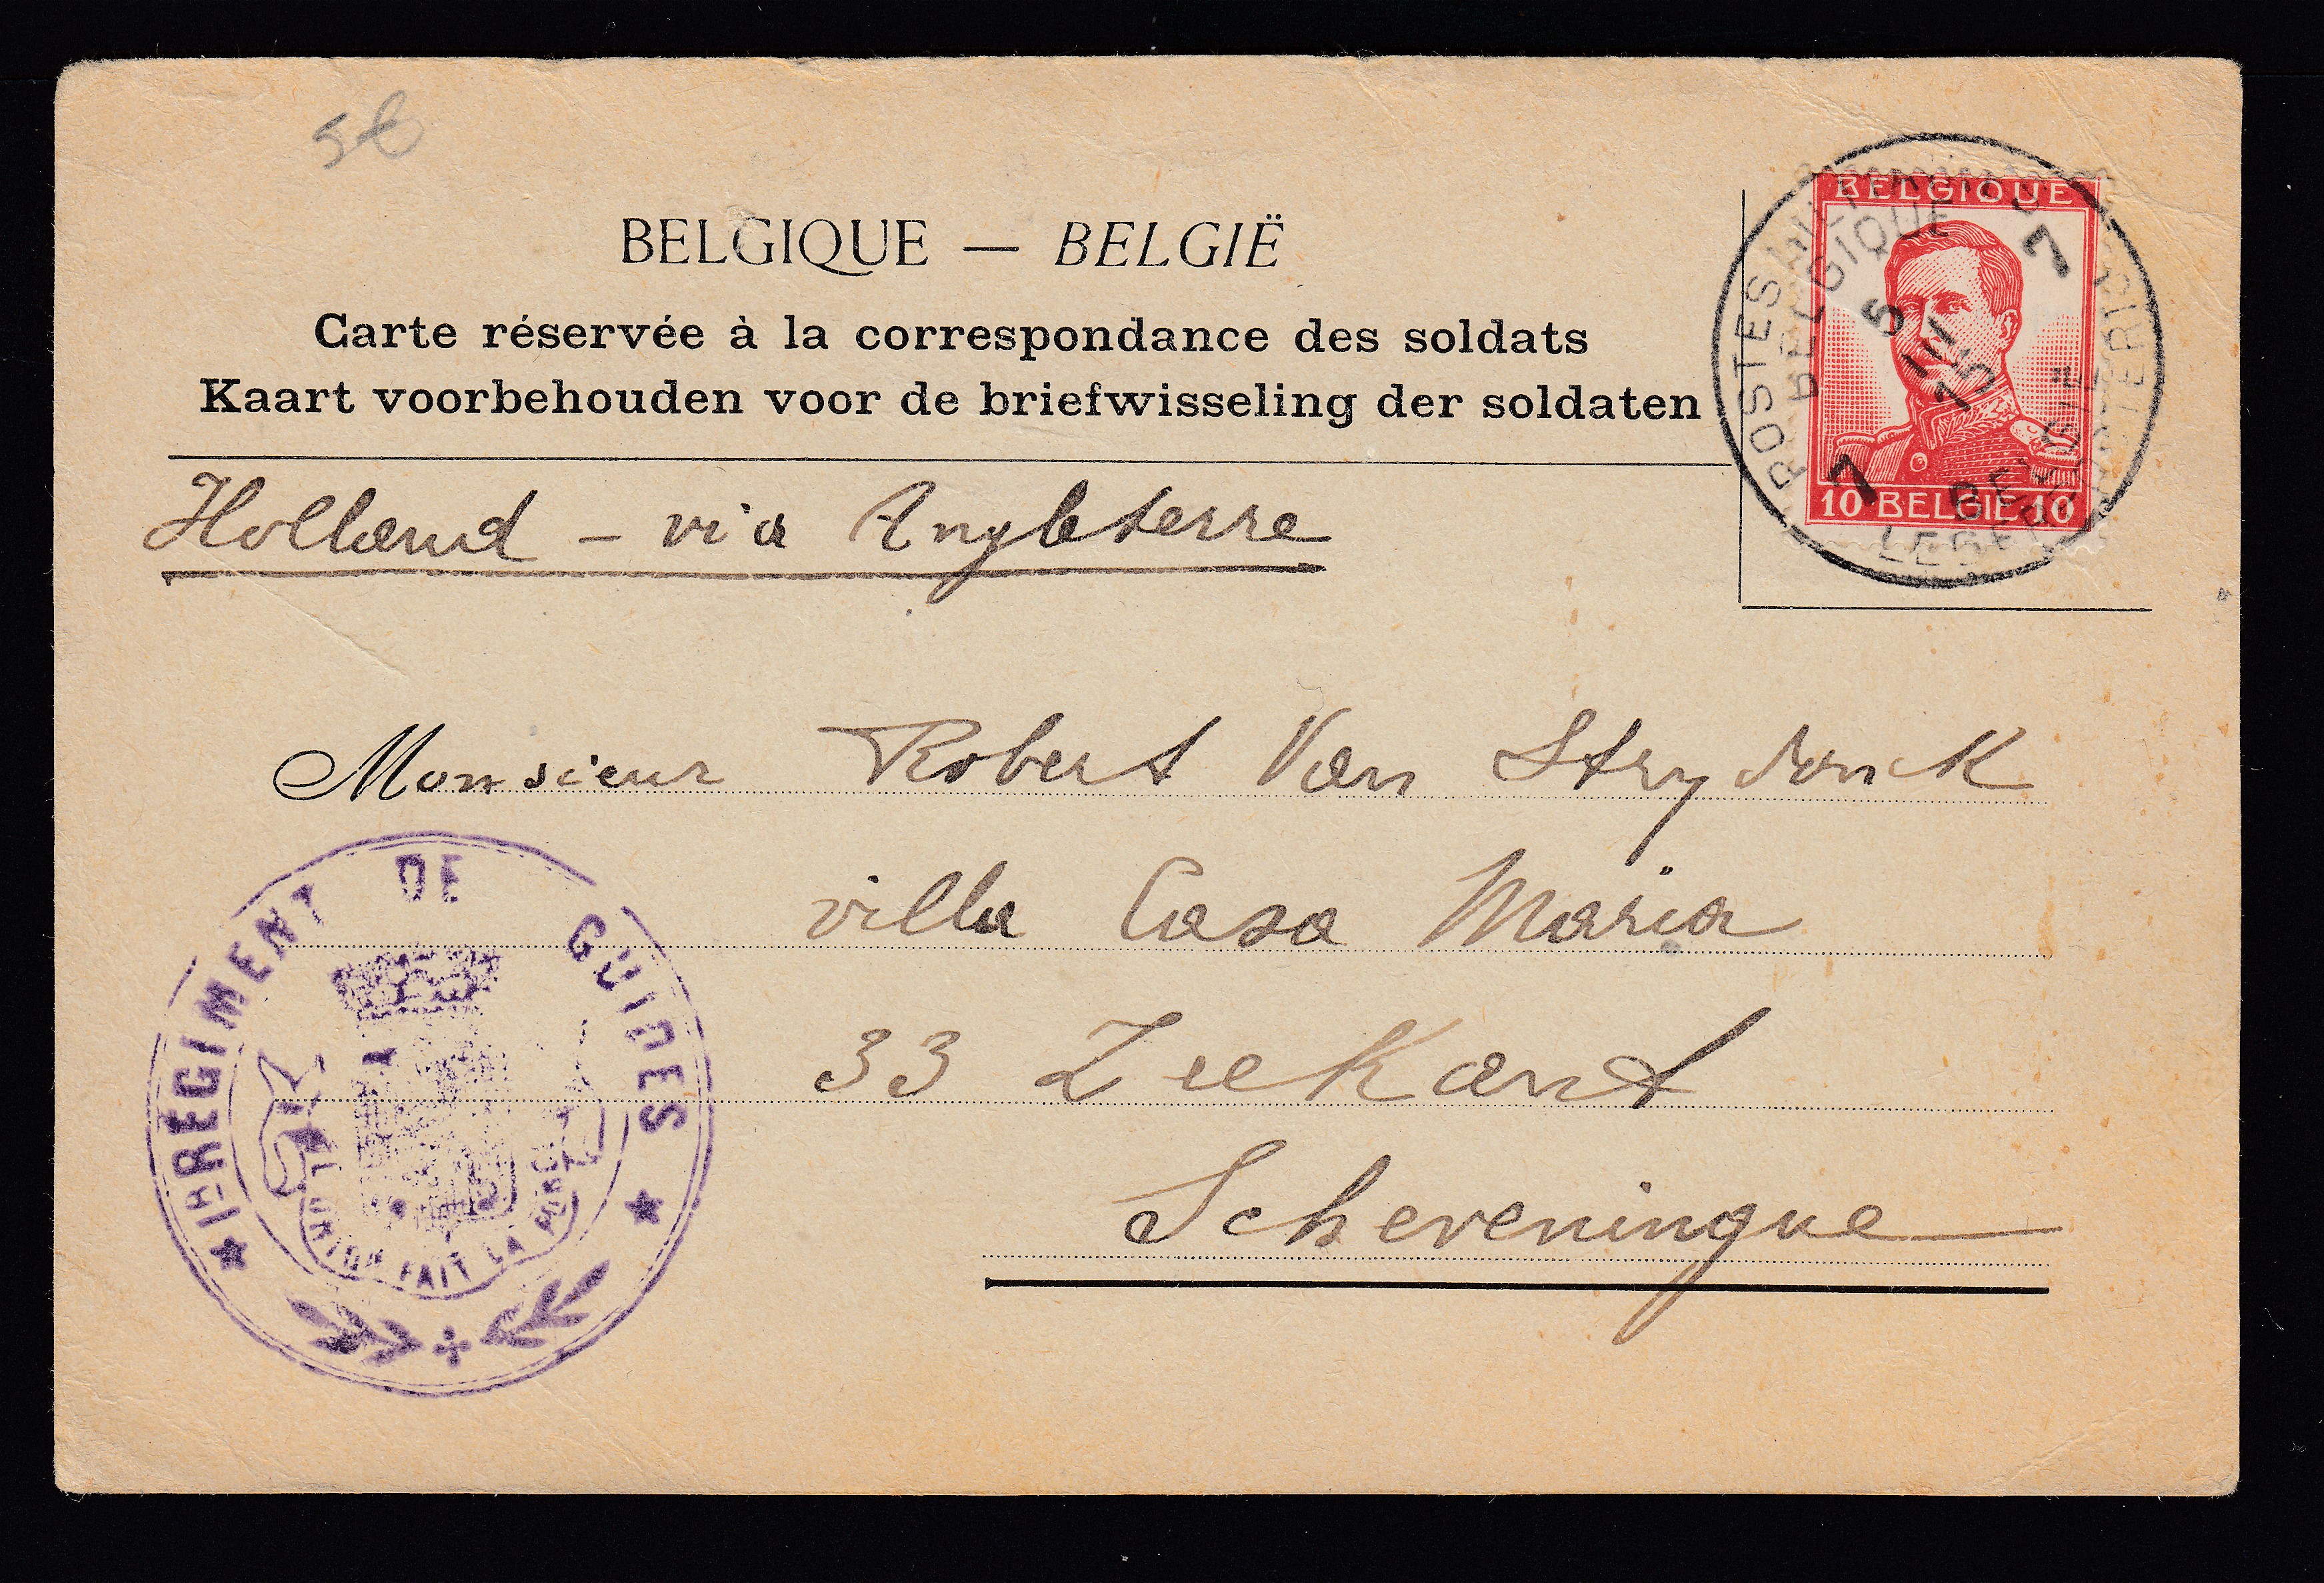 5€
BELGIQUE — BELGIË
Carte réservée à la correspondance des soldats
Kaart voorbehouden voor de briefwisseling der soldaten
BELGIQUE
10 BELGIË 10
POSTES MILITAIRES
BELGIQUE
7
5 III
15
7
BELGIE
LEGERPOSTERIJ
Holland - via Angleterre
Monsieur Robert Van Strydonck
villa Casa Maria
33 Zeekant
Scheveningue
1R RÉGIMENT DE GUIDES
L'UNION FAIT LA FORCE